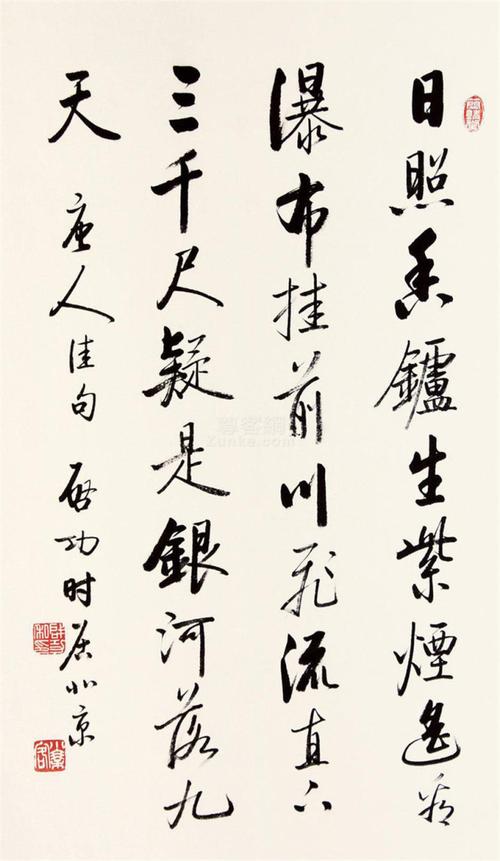 日照香鑪生紫煙遙看
瀑布挂前川飛流直下
三千尺疑是銀河落九
天 唐人佳句 啓功时居北京
尊客網
Zunka.com